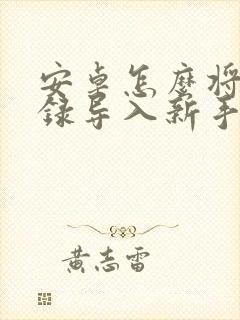 安卓怎麼将
錄导入新手
黄志雷